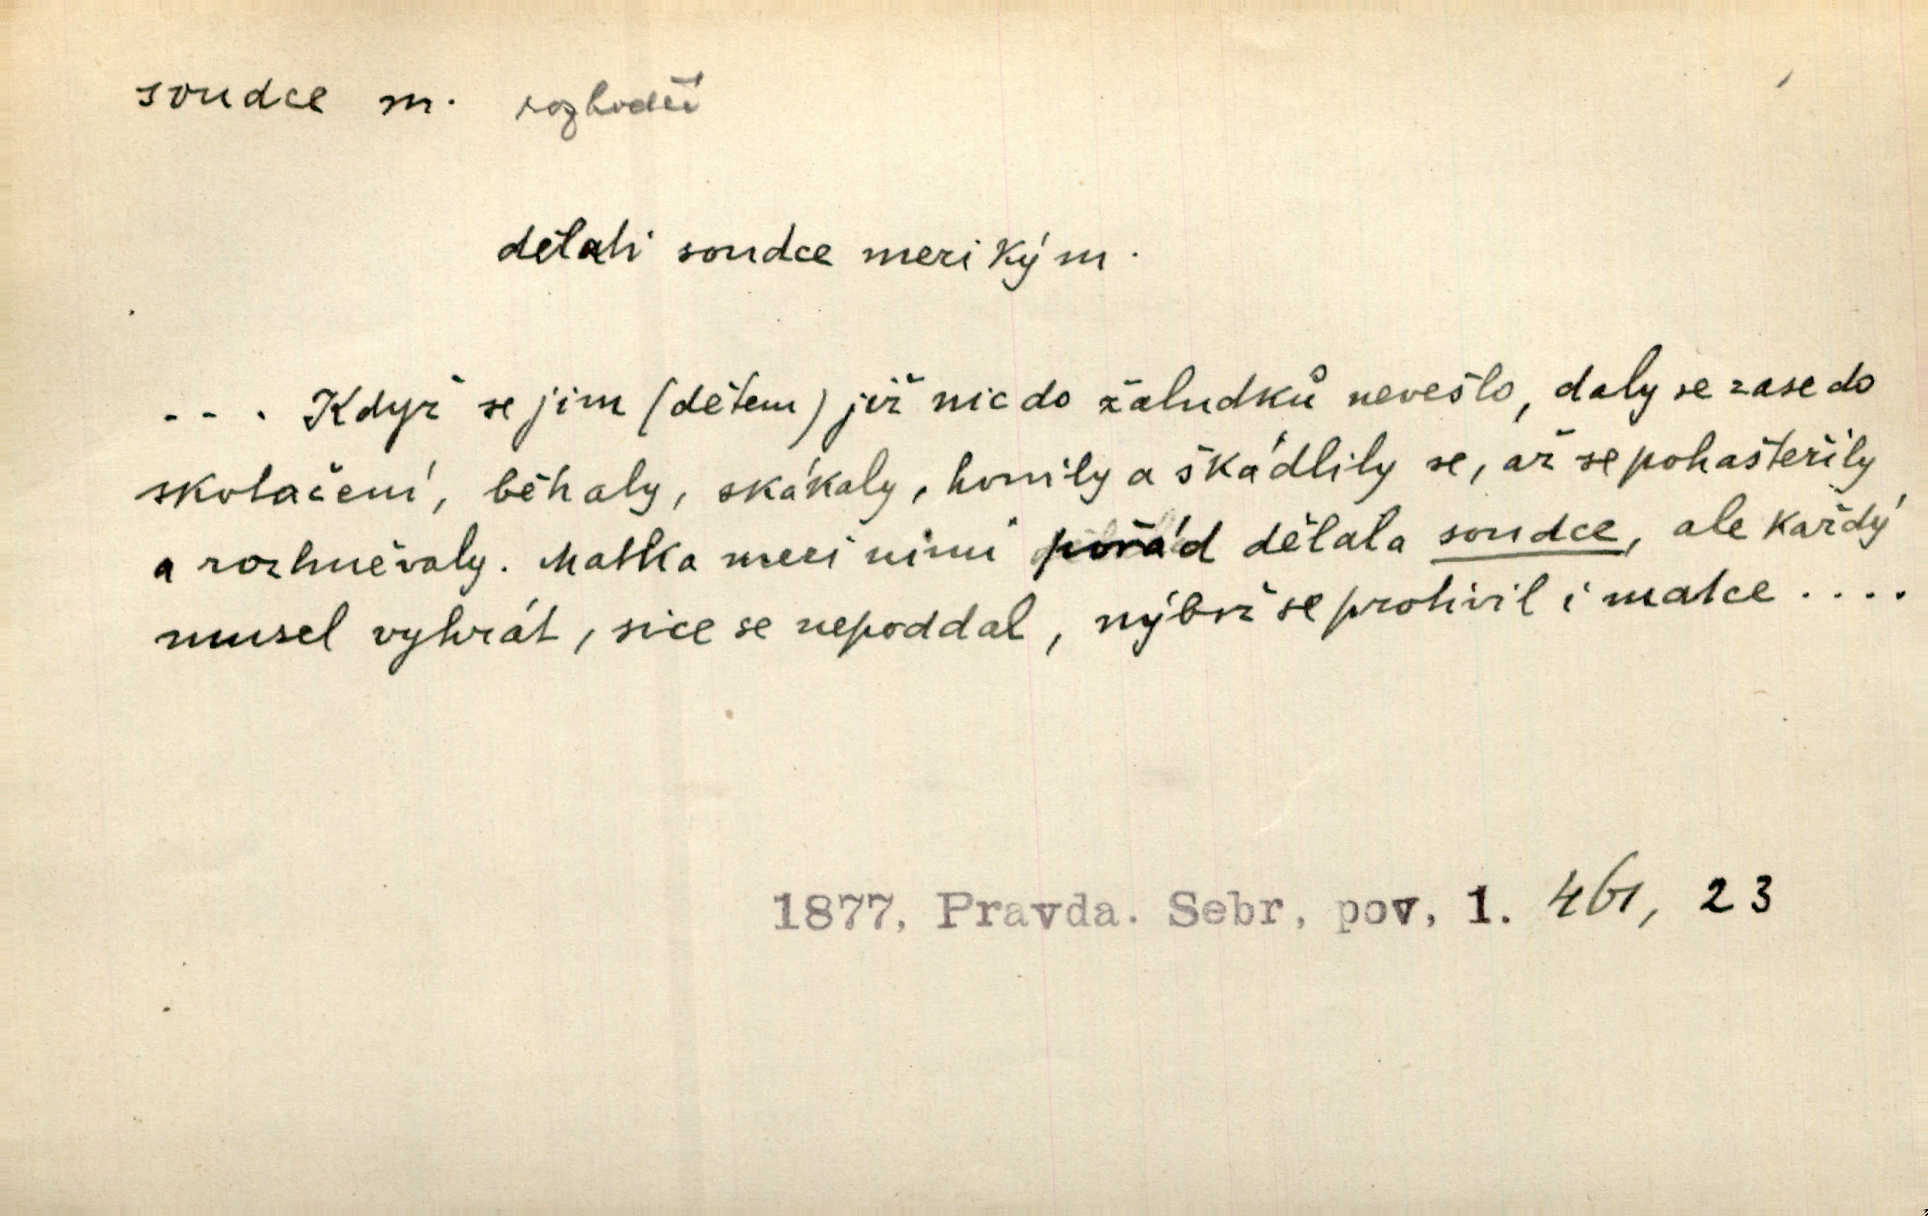 soudce m. rozhodčí
dělati soudce mezi kým.
... Když se jim (dětem) již nic do žaludků nevešlo, daly se zase do
skotačení, běhaly, skákaly, honily a škádlily se, až se pohašteřily
a rozhněvaly. Matka mezi nimi pořád dělala soudce, ale každý
musel vyhrát, sice se nepoddal, nýbrž se protivil i matce ....
1877, Pravda. Sebr, pov, 1. 461, 23